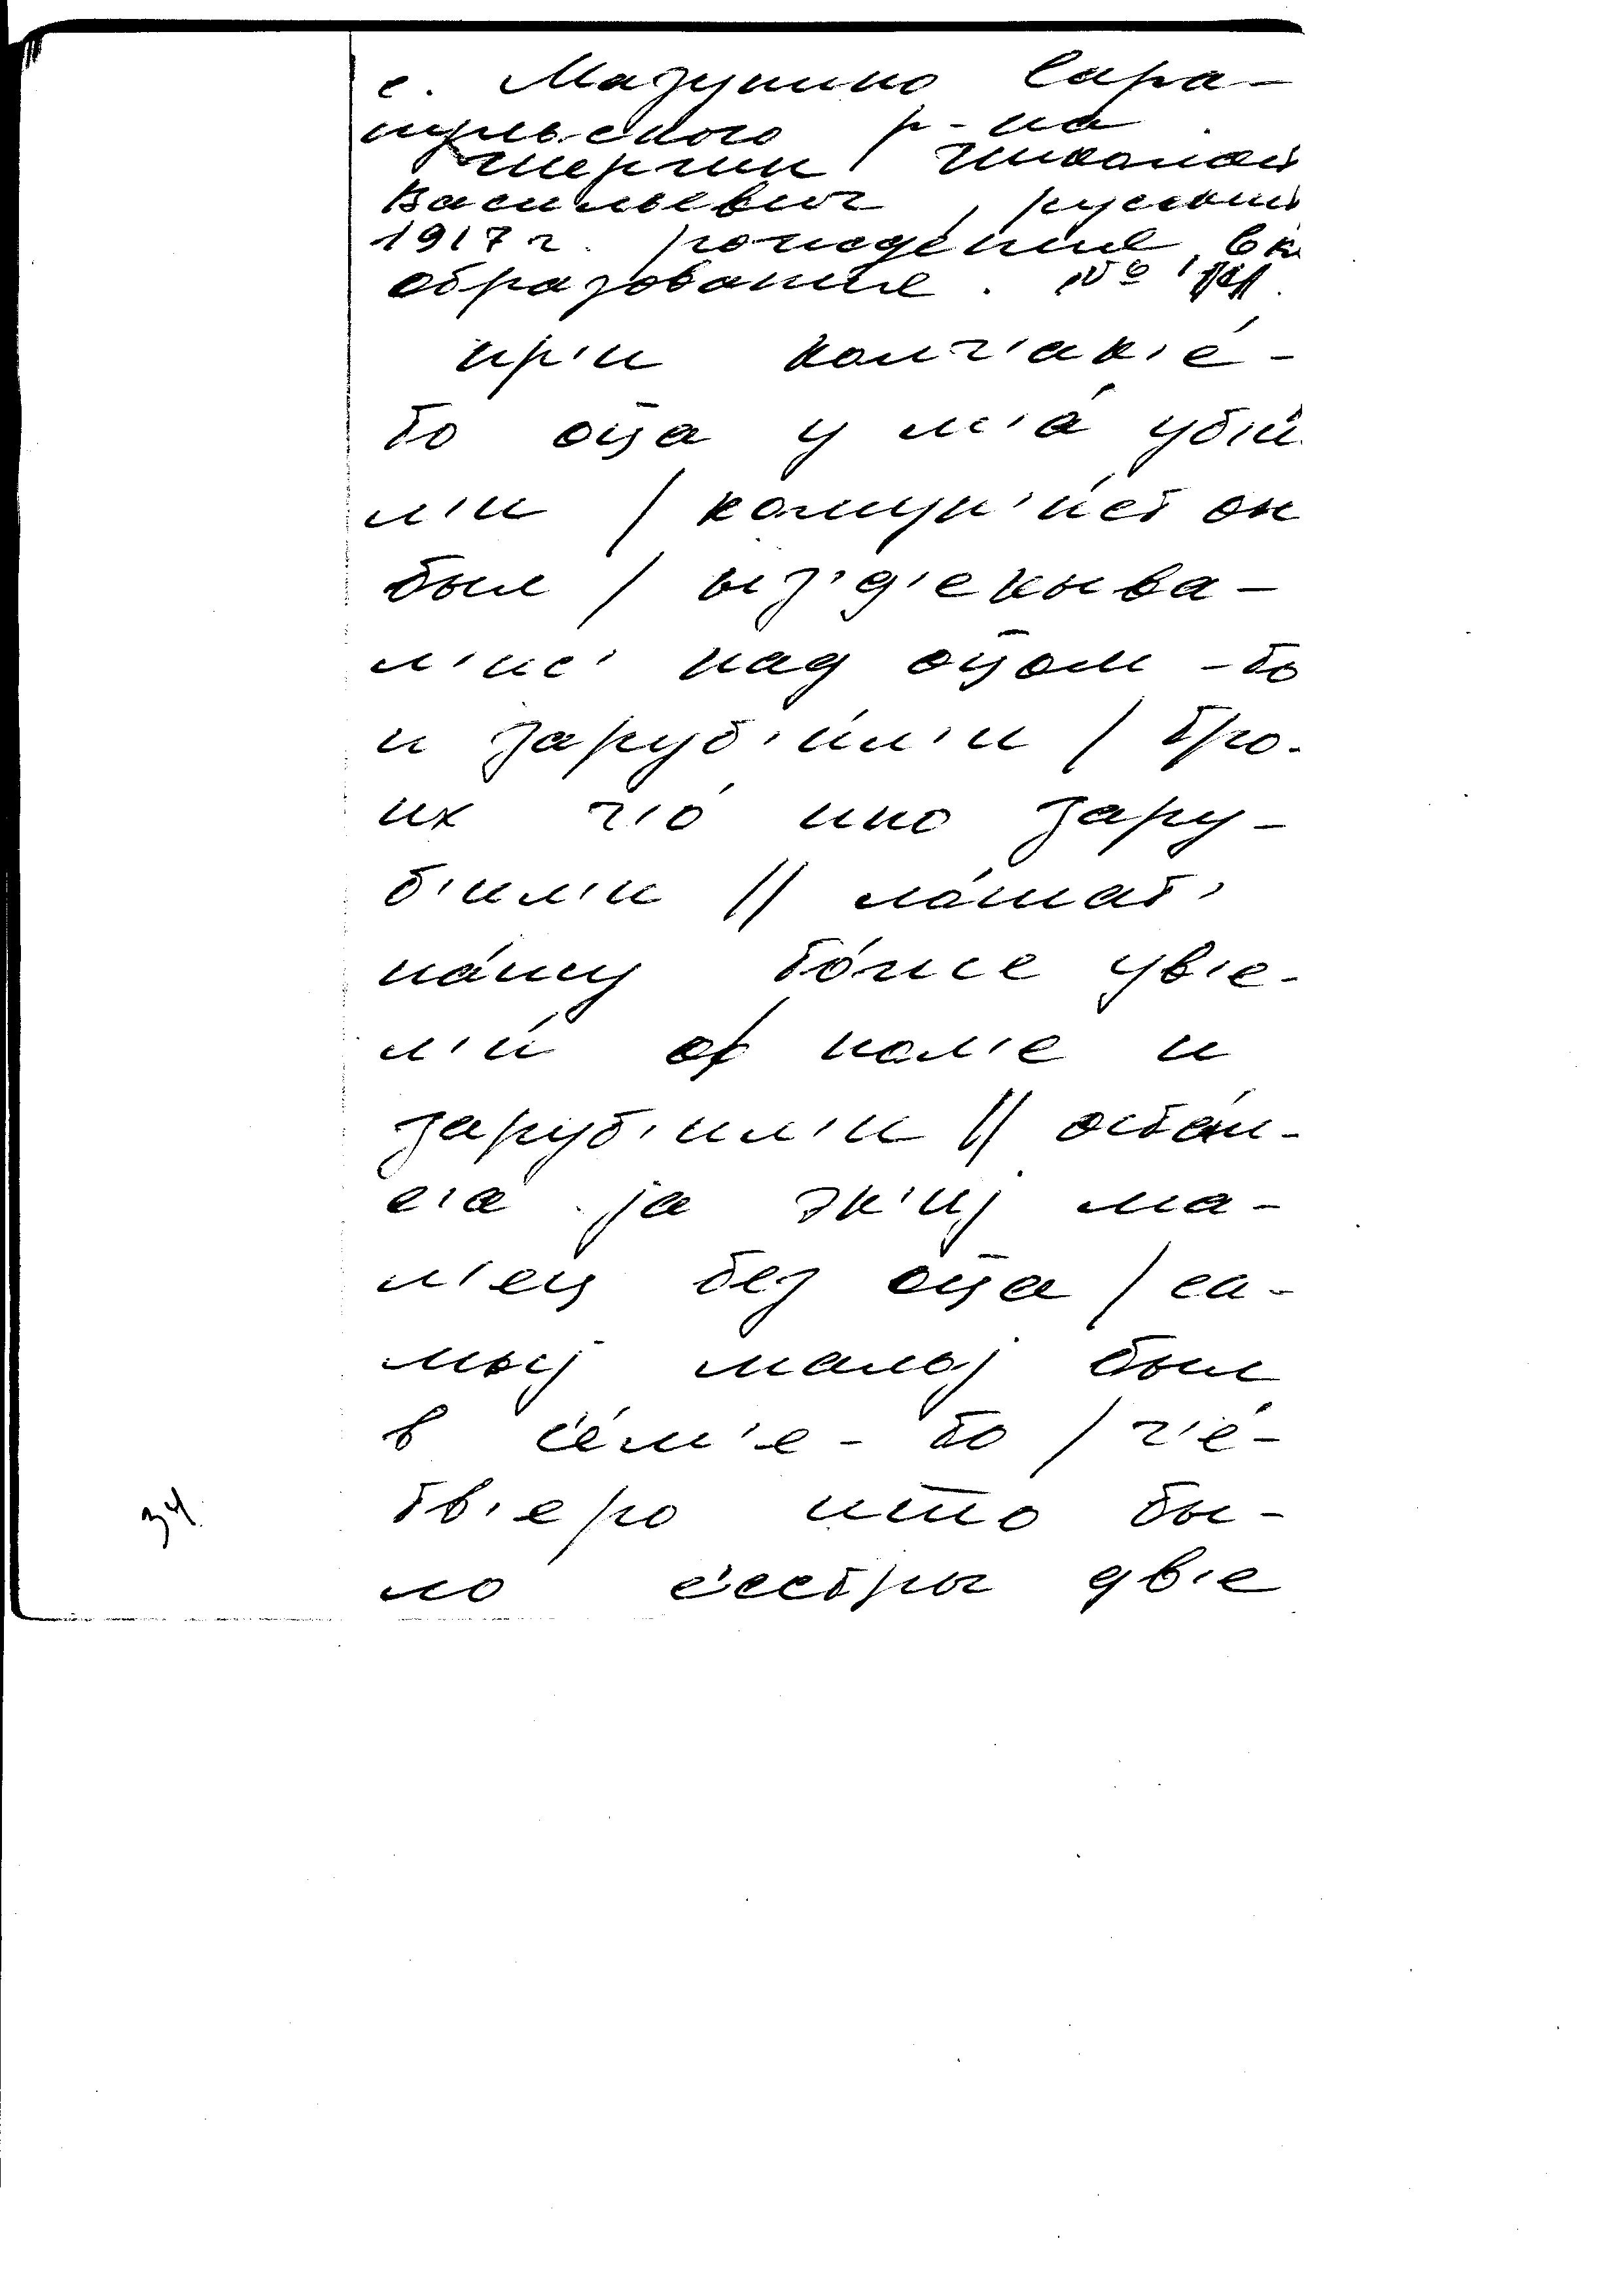 с. Мазунино Сара-
пульского р-на.
Шергин Николай
Васильевич, русский
1917 г. рождения, 6 кл
образование.
пр'и колч'ак'е́-
то оц̅а у м'а́ уби́
л'и / комун'и́ст он
был / ыз'д'екыва-
л'ис' над оц̅ом -то
и заруб'и́л'и / тро-
их ч'о́ ино зару-
б'ил'и // ло́шат'
на́шу то́же ув'е-
л'и́ в пол'е и
заруб'ил'и // оста́л-
с'а ја эк'иј ма-
л'ец без оц̅а / са-
мыј малој был
в с'е́м'е - то / ч'е́-
тв'еро што бы-
ло с'естры дв'е
34